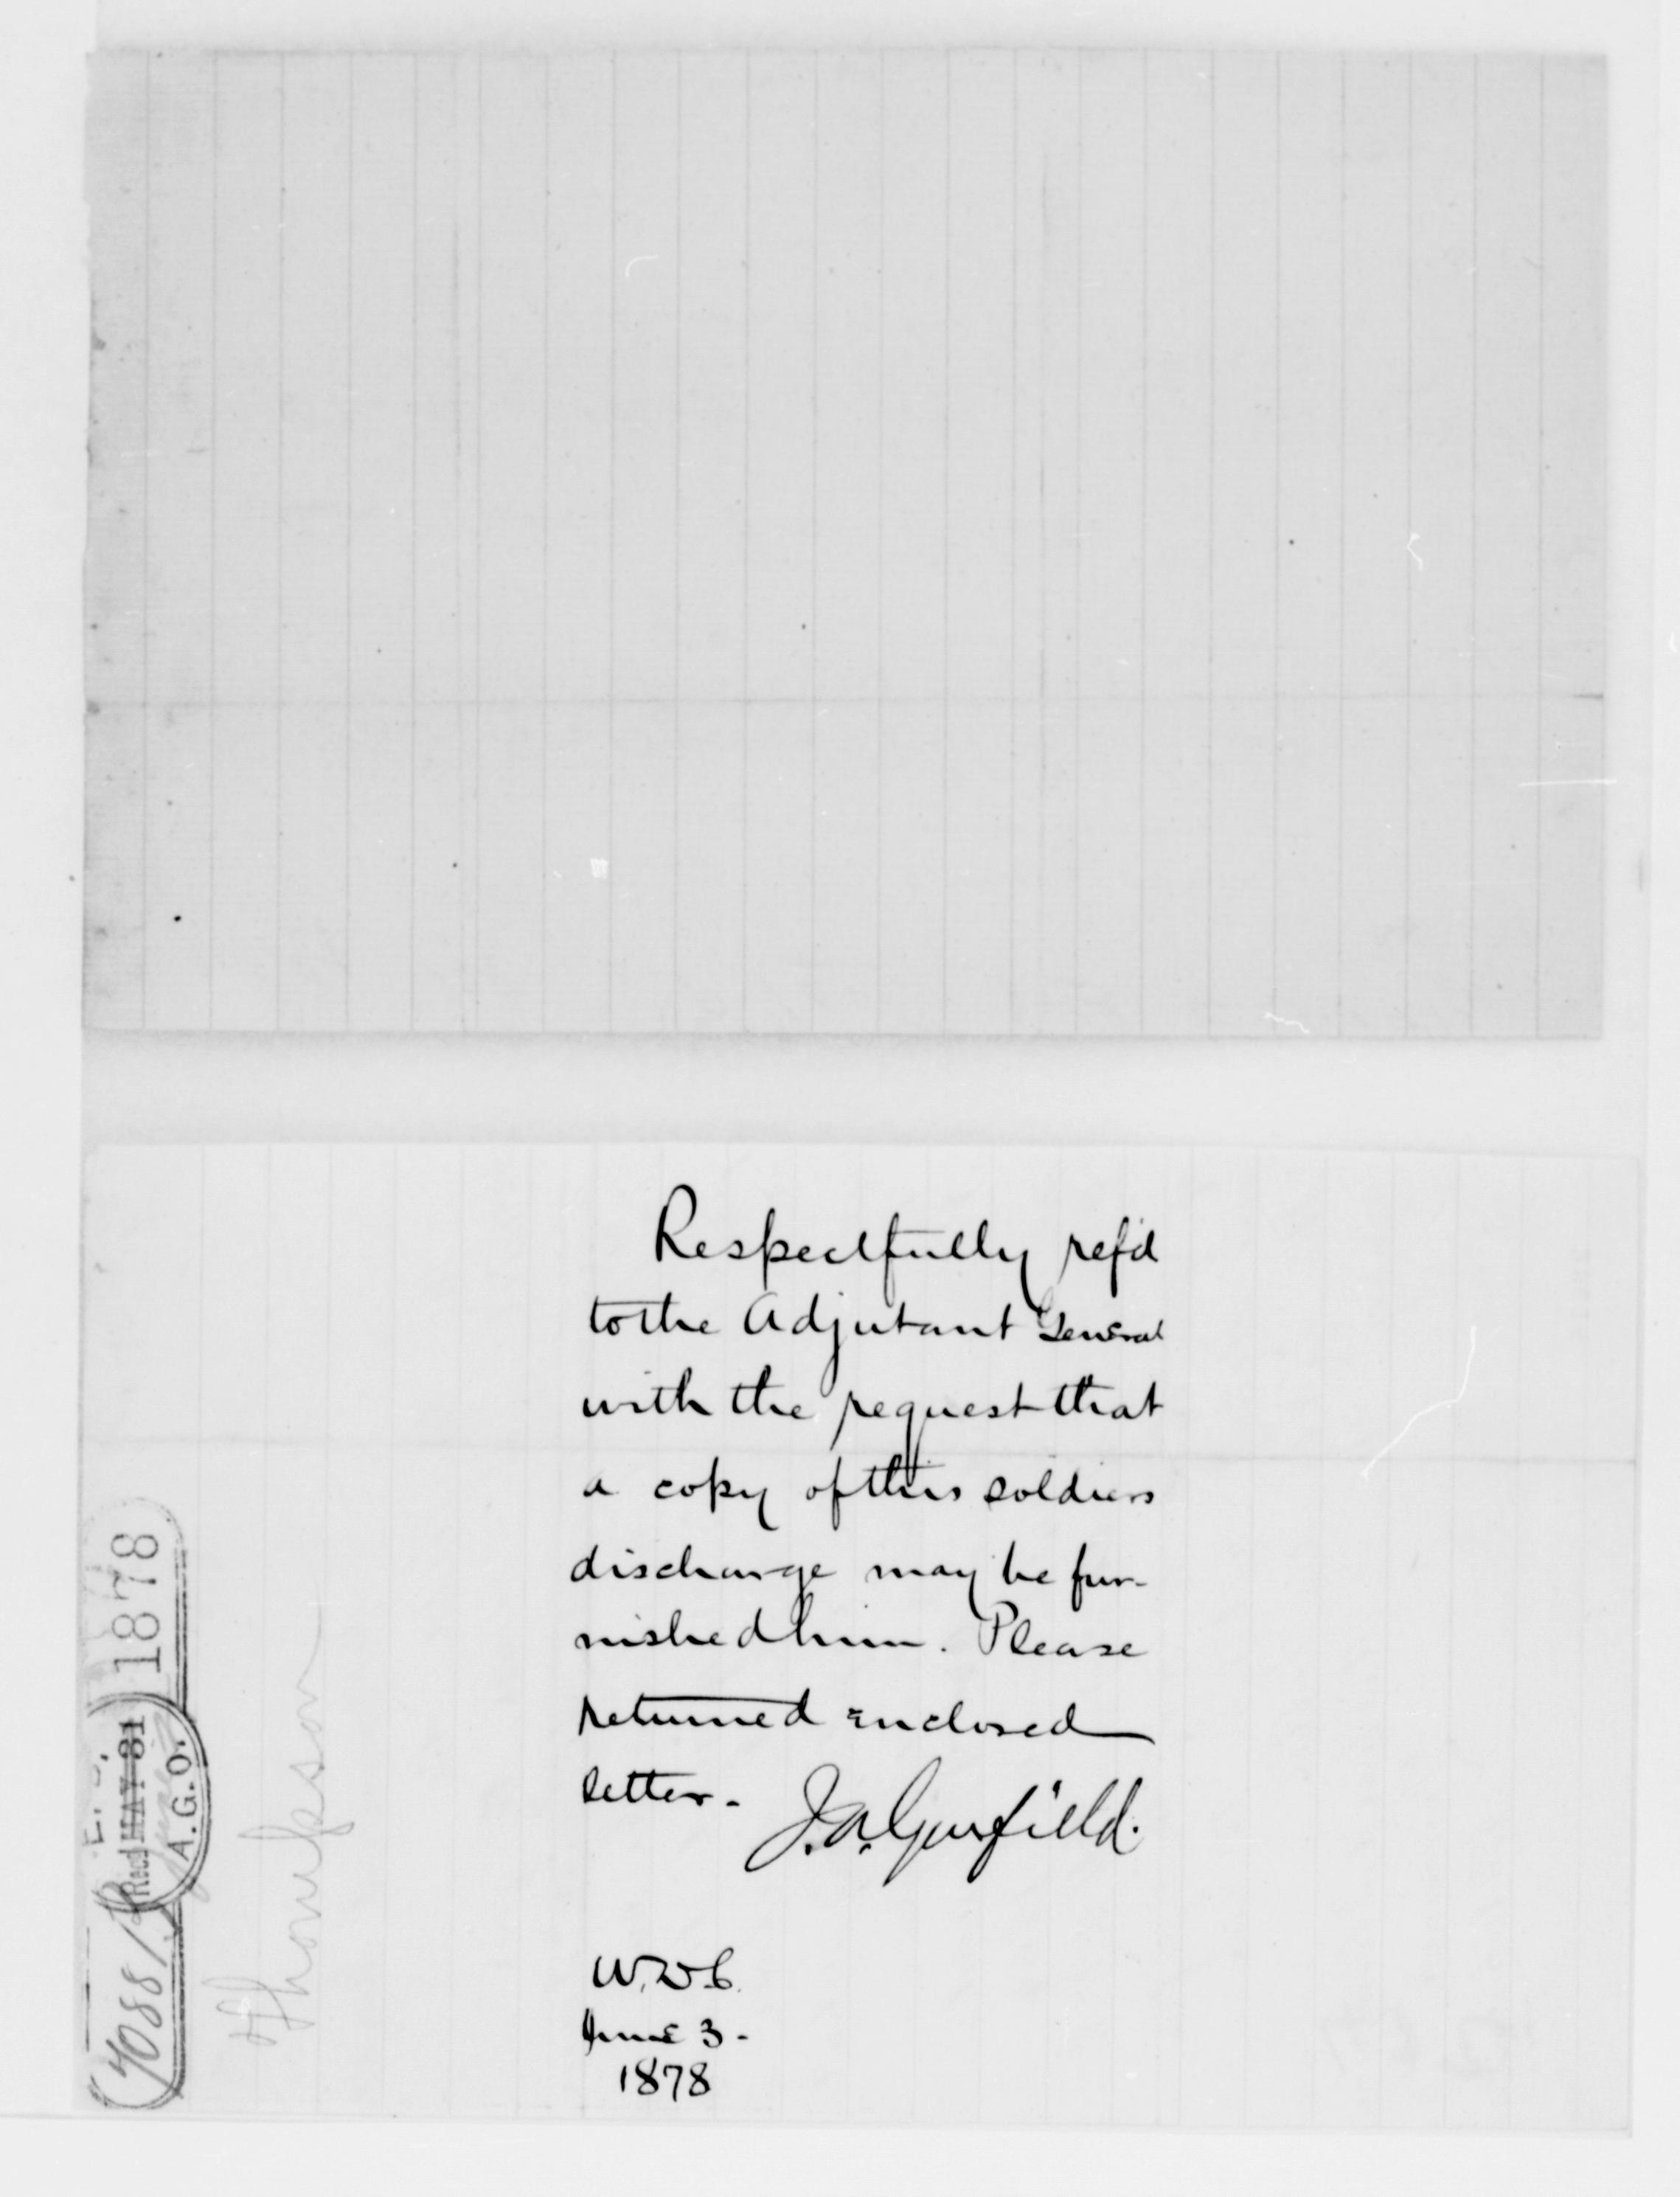 Respectfully ref'd
to the Adjutant General
with the request that
a copy of this soldiers
discharge may be fur-
nished him. Please
returned enclosed
letter.
J. A. Garfield.
W. D. C.
June 3-
1878
4088
Recd MAY 31
1878
A.G.O.
Thompson